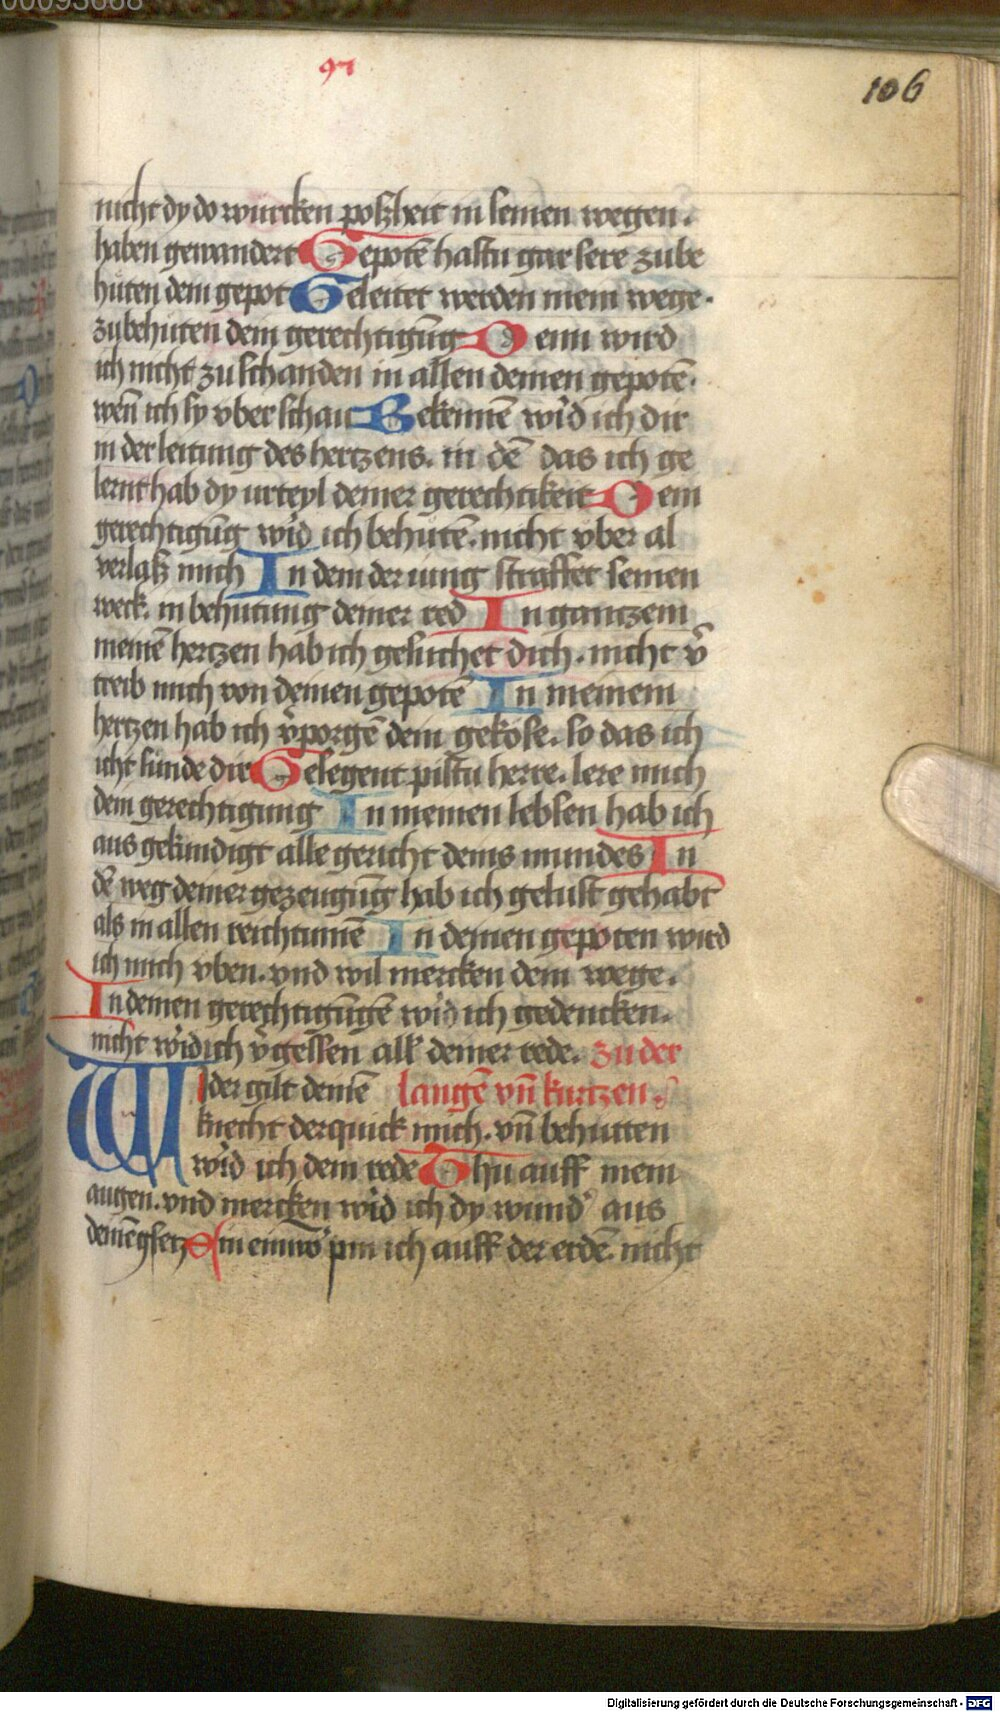 00093668
97
106
nicht dy do wurcken poszheit in seinen wegen.
haben gewandert Gepotē hastu gar sere zube
hüten dein gepot Geleitet werden mein wege.
zubehüten dein gerechtigūg Denn wird
ich nicht zu schanden in allen deinen gepotē.
wēn ich sy vberschau Bekennē wi̓d ich dir
in der leitung des hertzens. in dē das ich ge
lernt hab dy urteyl deiner gerechtikeit Dein
gerechtigūg wi̓d ich behütē. nicht vber al
verlasz mich In dem der iung straffet seinen
weck. in behutung deiner red In gantzem
meinē hertzen hab ich gesuchet dich. nicht v̓
treib mich von deinen gepotē In meinem
hertzen hab ich v̓porgē dein gekose. so das ich
icht sünde dir Gesegent pistu herre. lere mich
dein gerechtigung In meinen lebsen hab ich
aus gekundigt alle gericht deins mundes In
dē weg deiner gezeugūg hab ich gelust gehabt
als in allen reichtumē In deinen gepoten wird
ich mich vben. vnd wil mercken dein wege.
In deinen gerechtigūgē wi̓d ich gedencken.
nicht wi̓d ich v̓gessen all deiner rede. zu der
Wider gilt deinē langē vn̄ kurtzen.
knecht derquick mich. vn̄ behutten
wi̓d ich dein rede Thu auff mein
augen. vnd mercken wi̓d ich dy wund̓ aus
deinē gsetz Ein einwo̓ pin ich auff der erdē. nicht
Digitalisierung gefördert durch die Deutsche Forschungsgemeinschaft - DFG